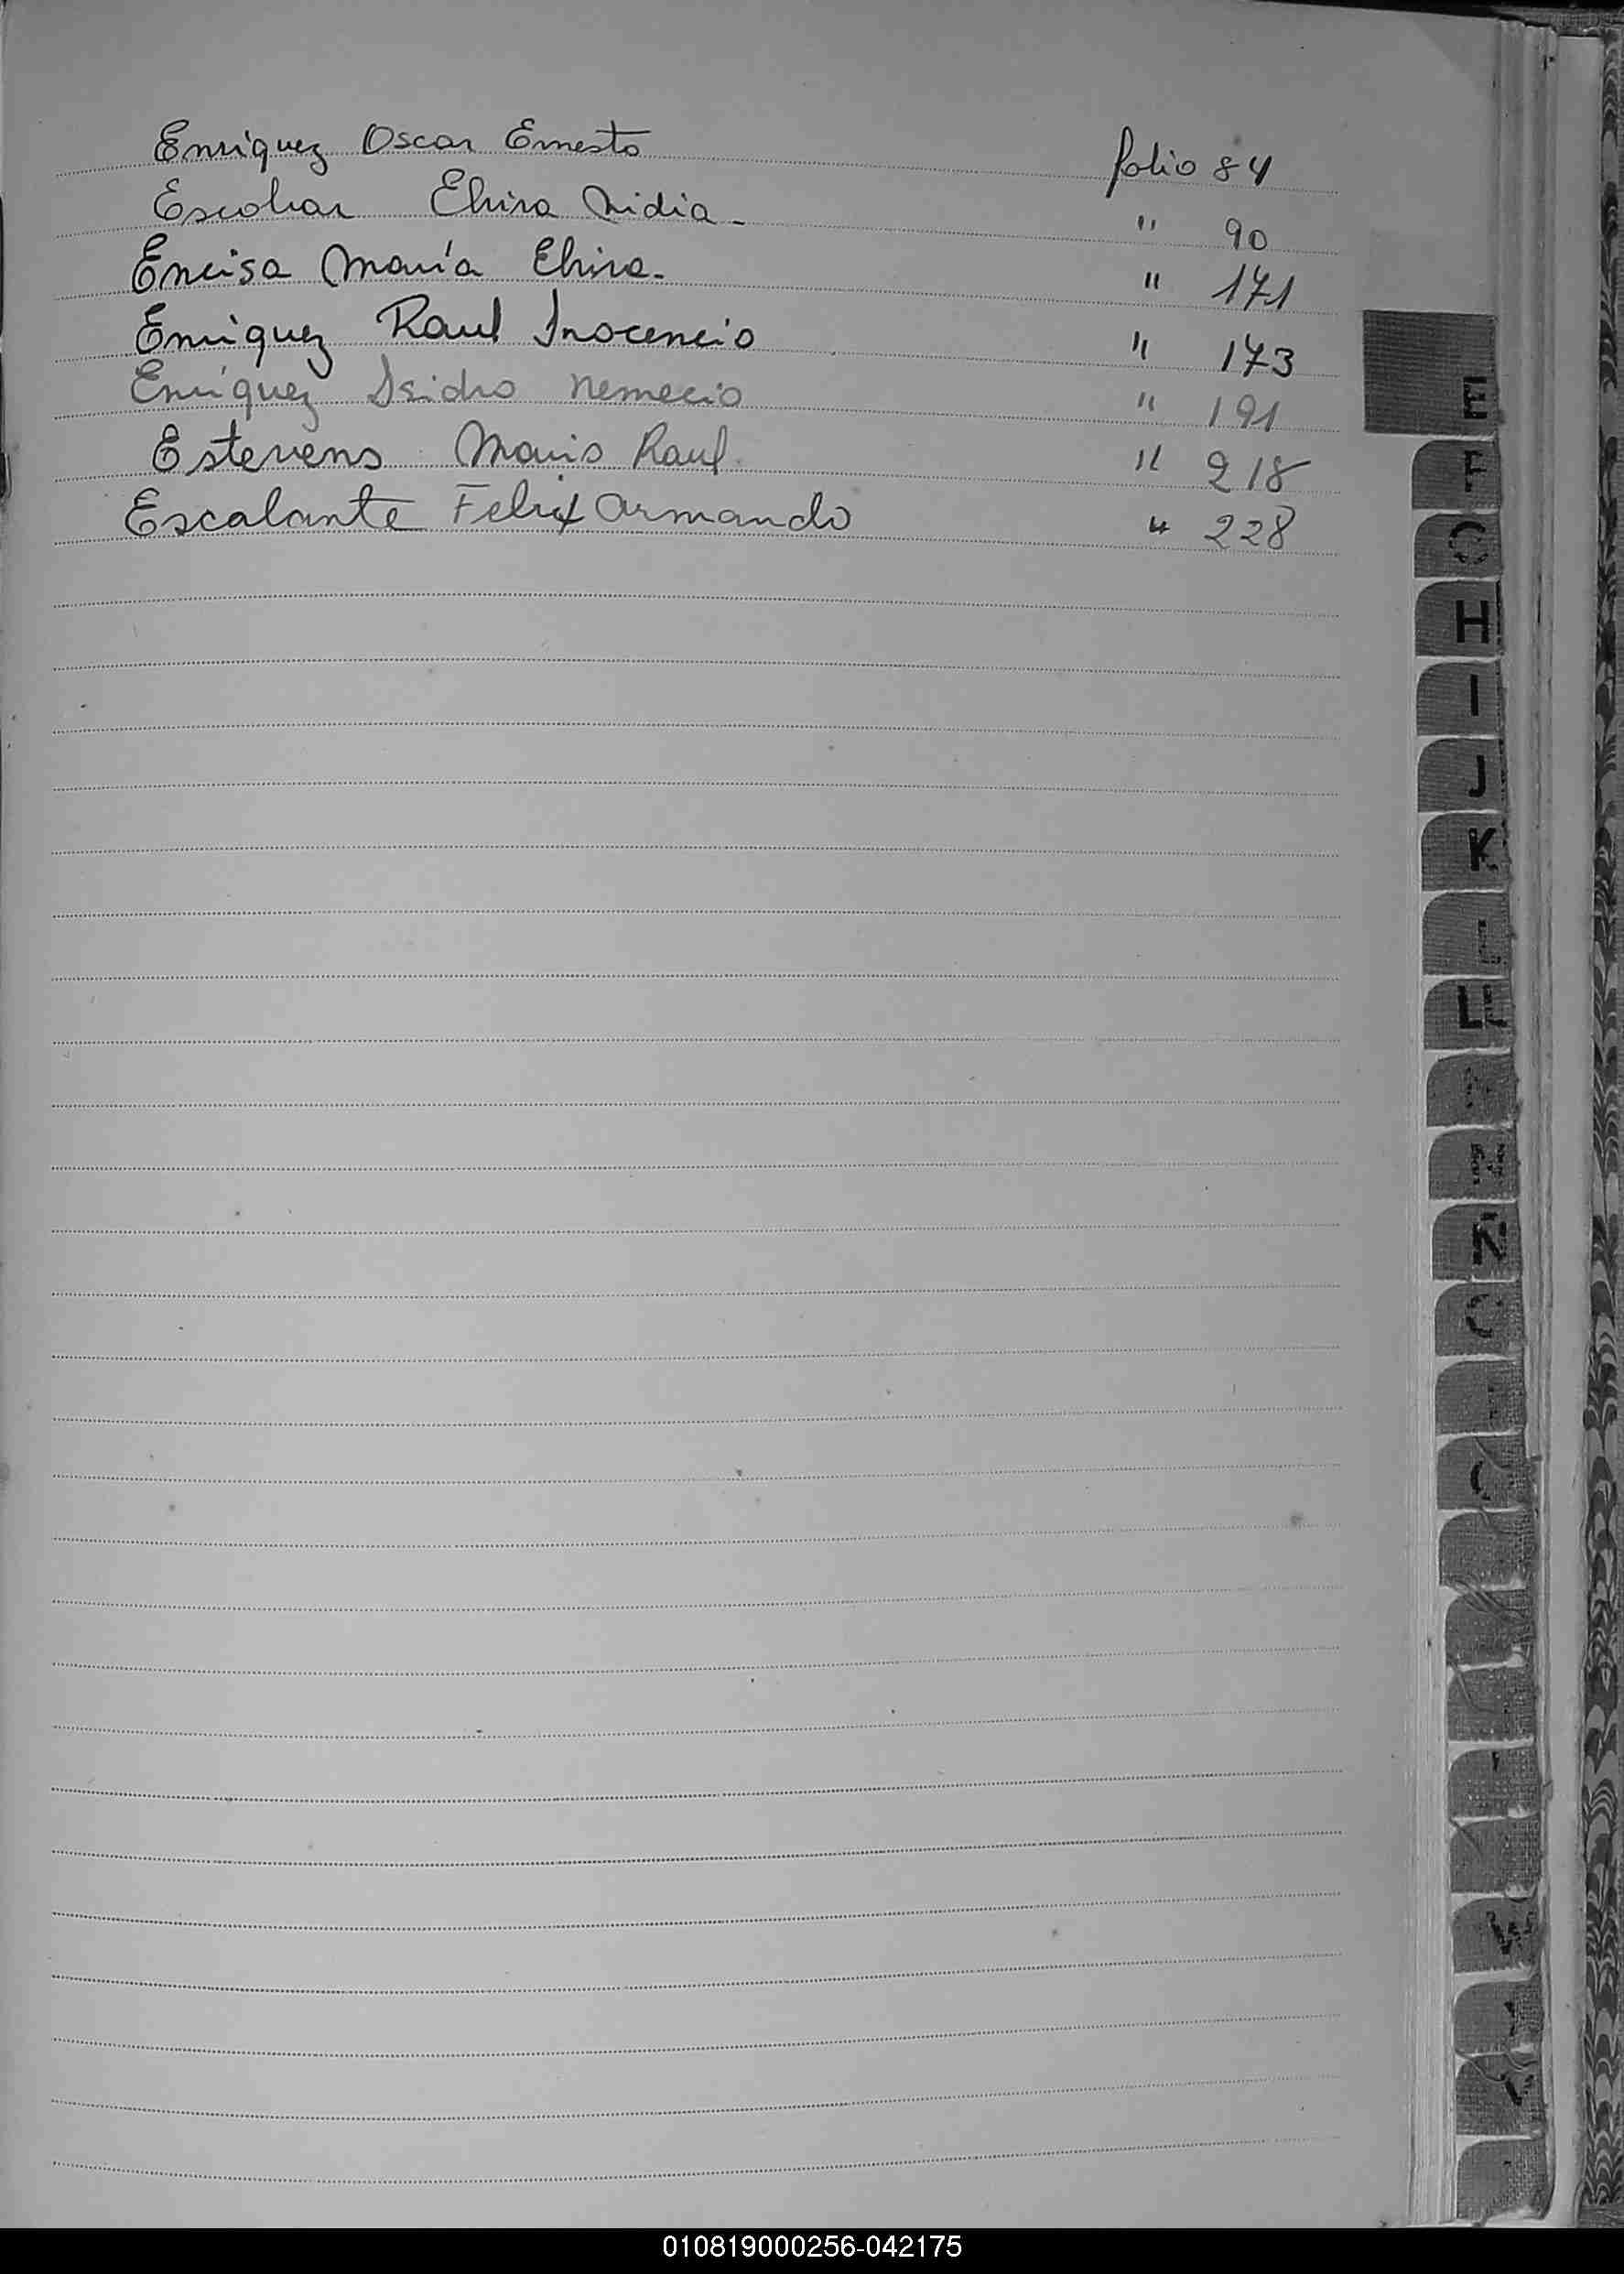 Enriquez Oscar Ernesto folio 84
Escobar Elvira Nidia - " 90
Encisa María Elvira - " 171
Enriquez Raul Inocencio " 173
Enriquez Isidro Nemecio " 191
Estevens Mario Raul " 218
Escalante Felix Armando " 228
E
F
H
I
J
K
LL
N
Ñ
W
010819000256-042175